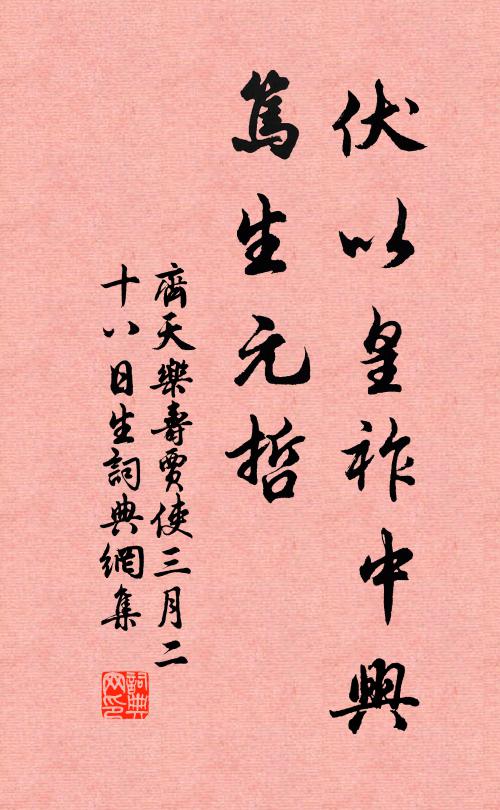 伏以皇祚中興
篤生元哲
齊天樂壽賈使三月二
十八日生詞典網集
詞典
网印